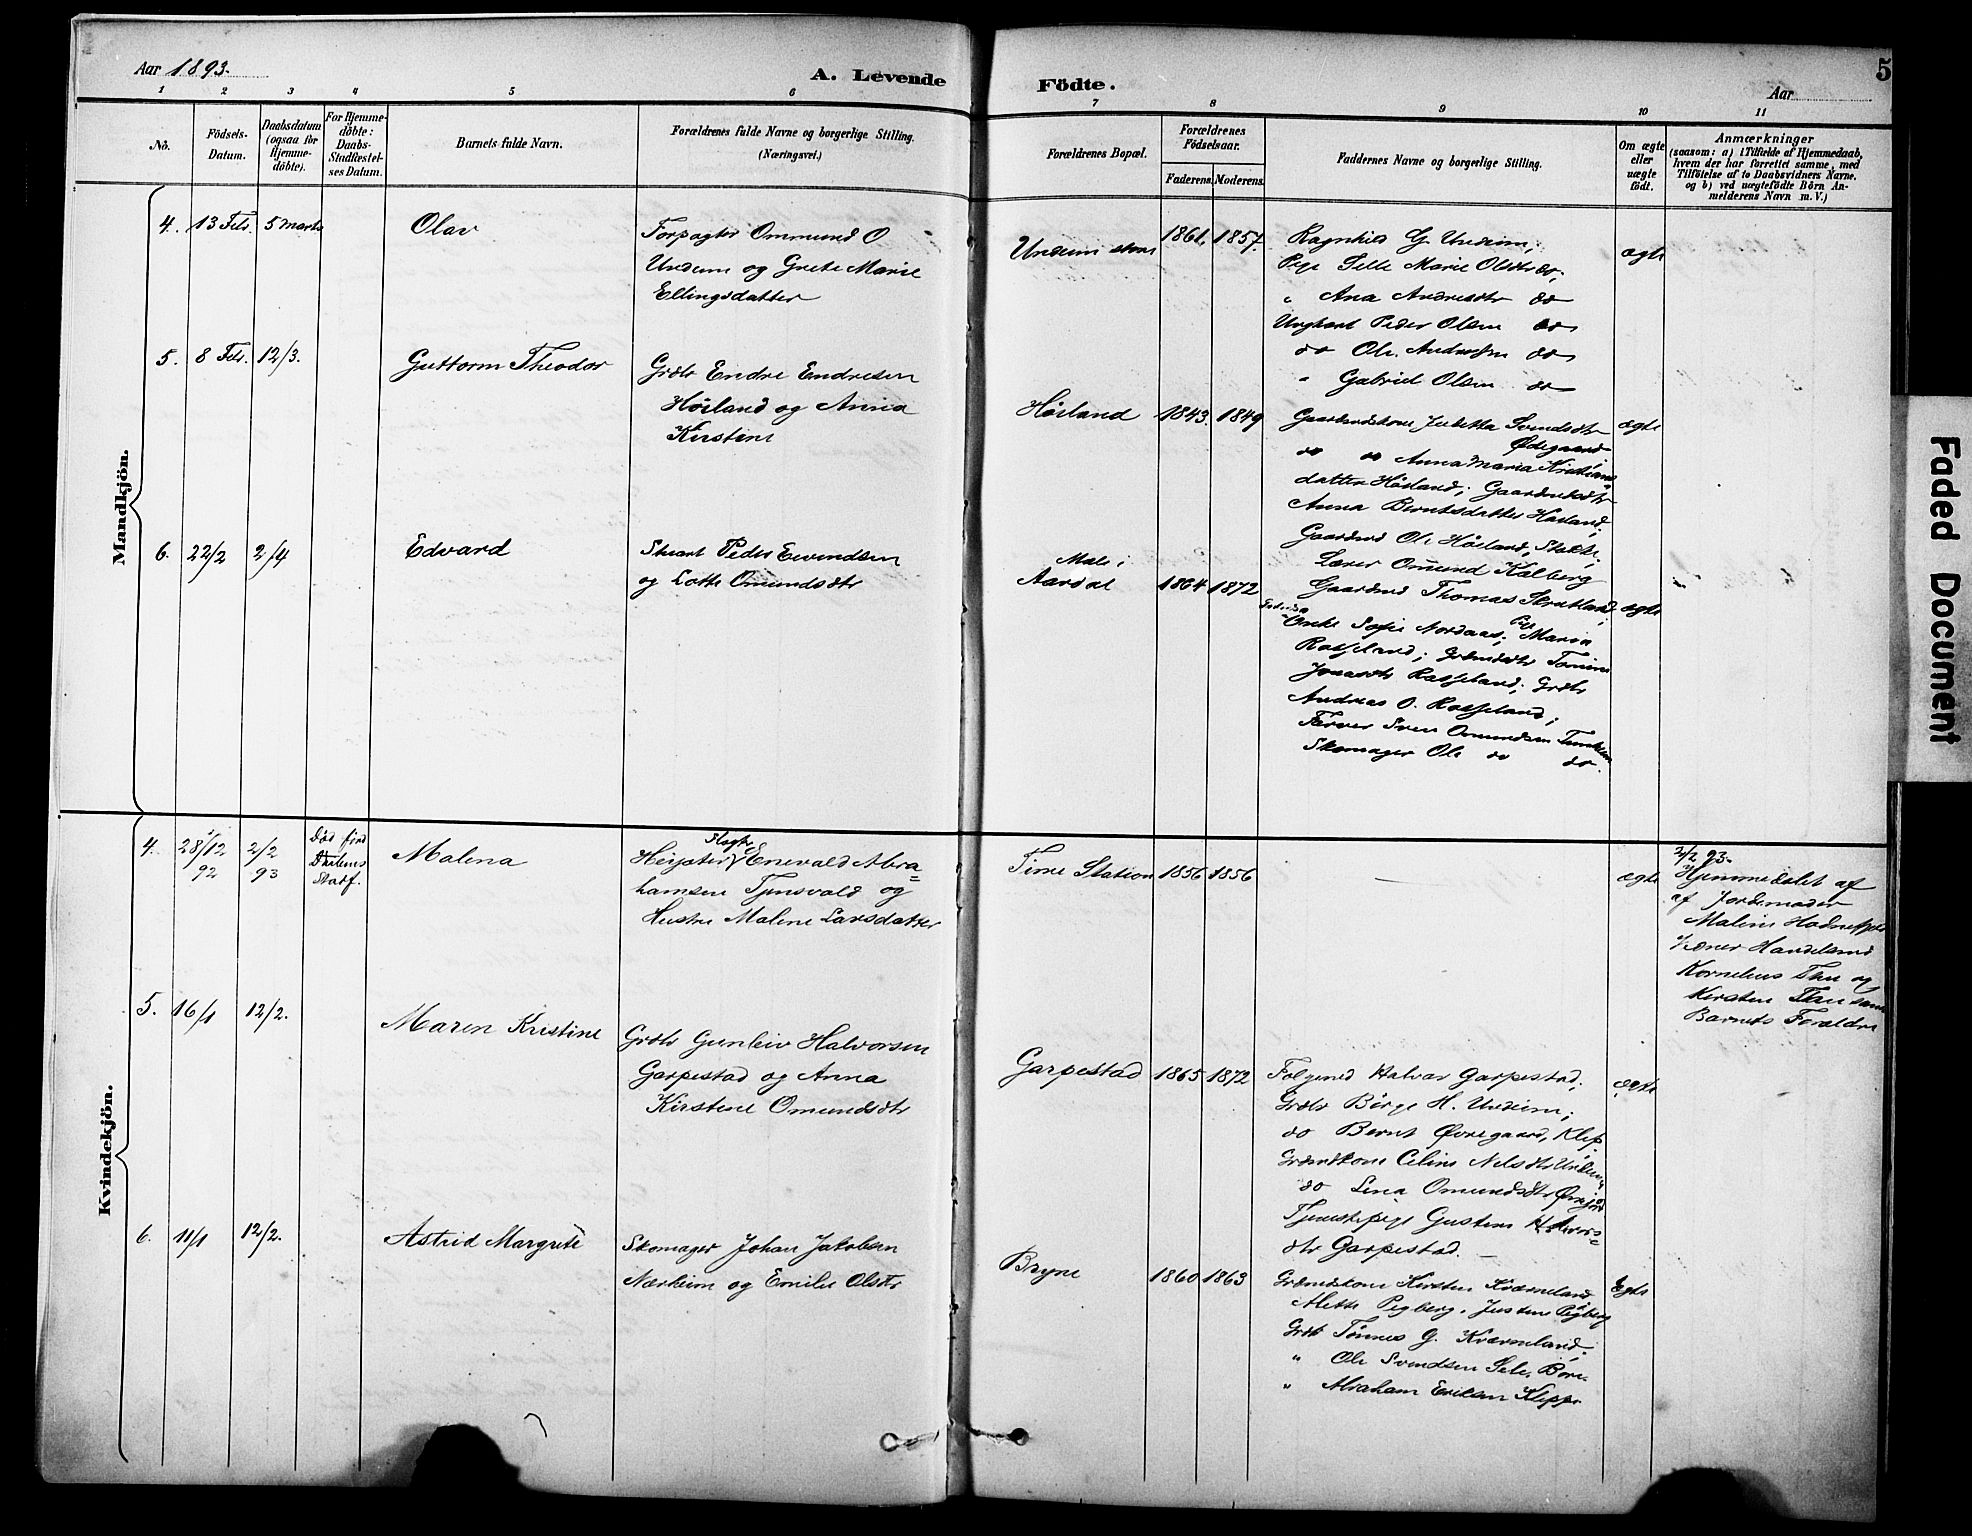 Aar 1893.
A. Levende
Födte.
Aar
5
1
2
3
4
5
6
7
8
9
10
11
No.
Födsels-
Datum.
Daabsdatum
(ogsaa for
Hjemme-
döbte).
For Hjemme-
döbte:
Daabs-
Stadfæstel-
ses Datum.
Barnets fulde Navn.
Forældrenes fulde Navne og borgerlige Stilling.
(Næringsvei.)
Forældrenes Bopæl.
Forældrenes
Födselsaar.
Faderens.
Moderens.
Faddernes Navne og borgerlige Stilling.
Om ægte
eller
uægte
födt.
Anmærkninger
(saasom: a) i Tilfælde af Hjemmedaab,
hvem der har forrettet samme, med
Tilföielse af to Daabsvidners Navne.
og b) ved uægtefödte Börn An-
melderens Navn m. V.)
Mandkjön.
4. 13 Feb. 5 Marts
Olav
Forpagter Ommund O
Undeim og Grete Marie
Ellingsdatter
1861. 1857.
Ragnhild G. Undeim;
Pige Selle Marie Olsdtr do.
" Ana Andresdtr do
Ungkarl Peder Olsen do
do Ole Andersen do
" Gabriel Olsen do
ægte
5. 8 Feb. 12/3.
Guttorm Theodor
Grdbr Endre Endresen
Høiland og Anna
Kirstine
Høiland
1843. 1849
Gaardmdskone Jubetta Svendsdtr
Ødegaard
do do Anna Maria Kristians-
datter Høiland; Gaardmdsdtr
Anna Berntsdatter Høiland;
Gaardmd Ole Høiland,
Lærer Omund Kalberg
ægte
6. 22/2 2/4
Edvard
Peder Eivendsen
og Lotte Omundsdtr
Aardal
1864 1872
Gaardmd Thomas
Sofie Nordaas; Pige Maria
Rosseland;
Jonasdtr Rosseland; Grdbr
Andreas O. Rosseland;
Farver Sven Omundsen
Skomager Ole do do.
ægte
Kvindekjön.
4. 28/12
92
2/2
93
Stadf.
Malena
Slagter
Enevald Abra=
hamsen Tjensvold og
Hustru Malene Larsdatter
Time Station
1856 1856
ægte
2/2 93.
Hjemmedøbt af
af Jordemoder
Malene
Handelsmd
Kornelius Thu og
Kirsten Thu samt
Barnets Forældre
5. 16/1 12/2.
Maren Kristine
Grdbr Gunleiv Halvorsen
Garpestad og Anna
Kirstene Omundsdtr
Garpestad
1865 1872
Folgemd Halvar Garpestad.
Grdbr Börge H. Undeim;
do Bernt Øvregaard, Klep
Grdmdkone Celine Nilsdtr Undeim
do Lina Omundsdtr
Tjenestepige Gustene Halvors=
dtr Garpestad. —
ægte
6. 11/1 12/2.
Astrid Margrete
Skomager Johan Jakobsen
Nærheim og Emilie Olsdtr
Bryne
1860 1863
Grdmdskone Kirsten Kværneland
Mette Pigberg. Justene Pigberg
Grdbr Tönnes G. Kværneland;
" Ole Svendsen Sele, Bore
" Abraham Eriksen Kleppe
Ægte
Faded Document